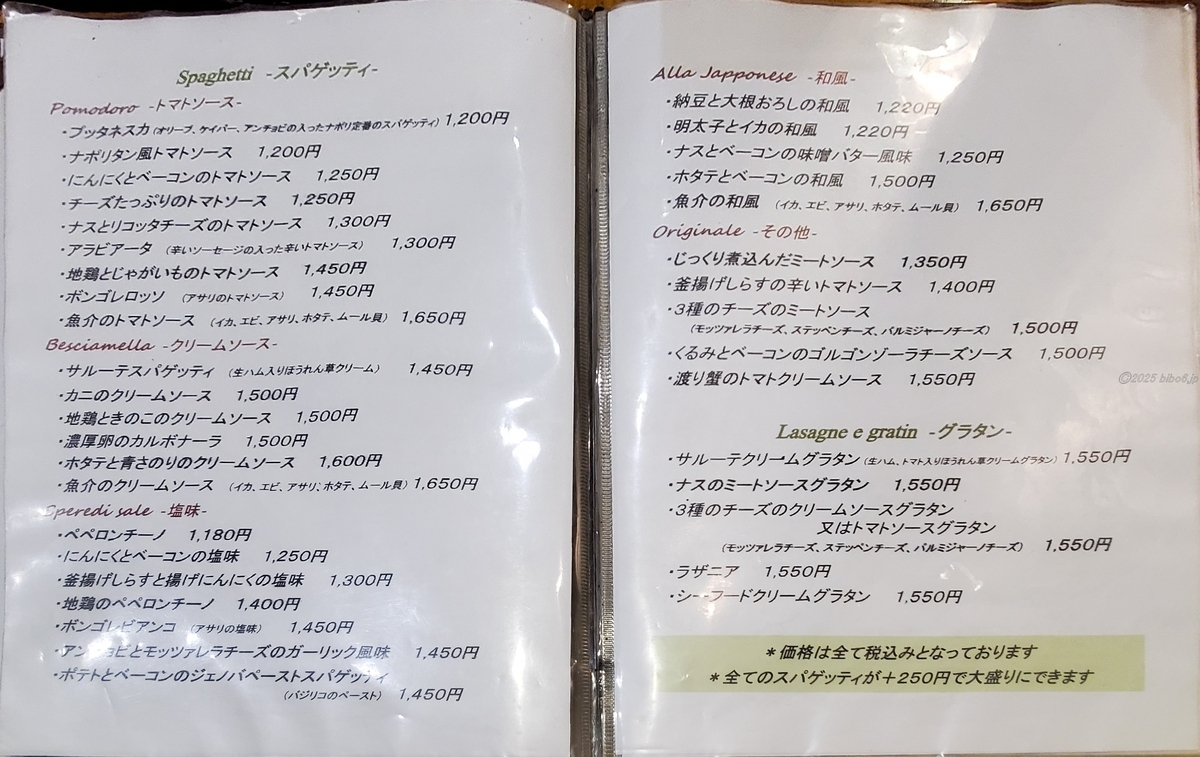 Spaghetti -スパゲッティ-
Pomodoro -トマトソース-
・プッタネスカ (オリーブ、ケイパー、アンチョビの入ったナポリ定番のスパゲッティ) 1,200円
・ナポリタン風トマトソース 1,200円
・にんにくとベーコンのトマトソース 1,250円
・チーズたっぷりのトマトソース 1,250円
・ナスとリコッタチーズのトマトソース 1,300円
・アラビアータ (辛いソーセージの入った辛いトマトソース) 1,300円
・地鶏とじゃがいものトマトソース 1,450円
・ボンゴレロッソ (アサリのトマトソース) 1,450円
・魚介のトマトソース (イカ、エビ、アサリ、ホタテ、ムール貝) 1,650円
Besciamella -クリームソース-
・サルーテスパゲッティ (生ハム入りほうれん草クリーム) 1,450円
・カニのクリームソース 1,500円
・地鶏ときのこのクリームソース 1,500円
・濃厚卵のカルボナーラ 1,500円
・ホタテと青さのりのクリームソース 1,600円
・魚介のクリームソース (イカ、エビ、アサリ、ホタテ、ムール貝) 1,650円
Speredi sale -塩味-
・ペペロンチーノ 1,180円
・にんにくとベーコンの塩味 1,250円
・釜揚げしらすと揚げにんにくの塩味 1,300円
・地鶏のペペロンチーノ 1,400円
・ボンゴレビアンコ (アサリの塩味) 1,450円
・アンチョビとモッツァレラチーズのガーリック風味 1,450円
・ポテトとベーコンのジェノバペーストスパゲッティ
(バジリコのペースト) 1,450円
Alla Japponese -和風-
・納豆と大根おろしの和風 1,220円
・明太子とイカの和風 1,220円
・ナスとベーコンの味噌バター風味 1,250円
・ホタテとベーコンの和風 1,500円
・魚介の和風 (イカ、エビ、アサリ、ホタテ、ムール貝) 1,650円
Originale -その他-
・じっくり煮込んだミートソース 1,350円
・釜揚げしらすの辛いトマトソース 1,400円
・3種のチーズのミートソース
(モッツァレラチーズ、ステッペンチーズ、パルミジャーノチーズ) 1,500円
・くるみとベーコンのゴルゴンゾーラチーズソース 1,500円
・渡り蟹のトマトクリームソース 1,550円
Lasagne e gratin -グラタン-
・サルーテクリームグラタン (生ハム、トマト入りほうれん草クリームグラタン) 1,550円
・ナスのミートソースグラタン 1,550円
・3種のチーズのクリームソースグラタン
又はトマトソースグラタン
(モッツァレラチーズ、ステッペンチーズ、パルミジャーノチーズ) 1,550円
・ラザニア 1,550円
・シーフードクリームグラタン 1,550円
＊価格は全て税込みとなっております
＊全てのスパゲッティが＋250円で大盛りにできます
©2025 bibo6.jp